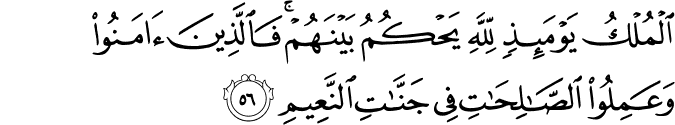 ٱلْمُلْكُ يَوْمَئِذٍ لِّلَّهِ يَحْكُمُ بَيْنَهُمْ ۚ فَٱلَّذِينَ ءَامَنُوا۟
وَعَمِلُوا۟ ٱلصَّـٰلِحَـٰتِ فِى جَنَّـٰتِ ٱلنَّعِيمِ ٥٦